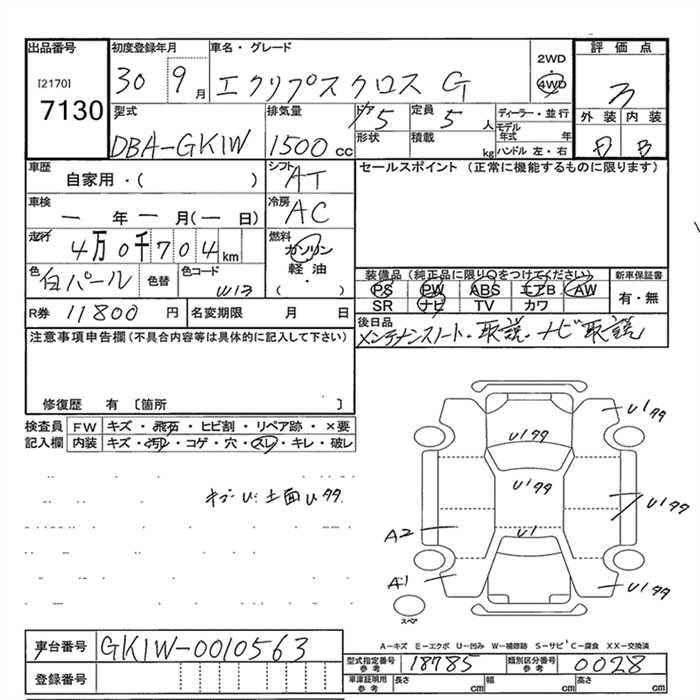 出品番号 初度登録年月 車名・グレード 2WD 評価点
[2170] 30 9月 エクリプスクロス G 4WD
7130 外装 内装
型式 排気量 ドア 5 定員 5人 ディーラー・並行
DBA-GK1W 1500cc 形状 積載 kg モデル年式 年
ハンドル 左・右 B
車歴 シフト セールスポイント (正常に機能するものに限ります)
自家用・( ) AT
車検 冷房
ー年ー月(ー日) AC
走行 燃料
4万0千704km ガソリン
軽油
・
( )
色 色替 色コード 装備品 (純正品に限り○をつけてください) 新車保証書
白パール W13 PS PW ABS エアB AW 有・無
SR ナビ TV カワ
R券 11800円 名変期限 月 日 後日品
メンテナンスノート・取説・ナビ取説
注意事項申告欄(不具合内容等は具体的に記入して下さい)
修復歴 有 〔箇所 〕
検査員 FW キズ・飛石・ヒビ割・リペア跡・×要
記入欄 内装 キズ・汚れ・コゲ・穴・スレ・キレ・破レ
U1 99
U1 99
U1 99
U1 99
U1
A2
A1
U1 99
スペア
A-キズ E-エクボ U-凹み W-補修跡 S-サビ C-腐食 XX-交換済
車台番号 GK1W-0010563
型式指定番号 参考 18785 類別区分番号 参考 0028
登録番号 車庫証明用 参考 長さ cm 幅 cm 高さ cm